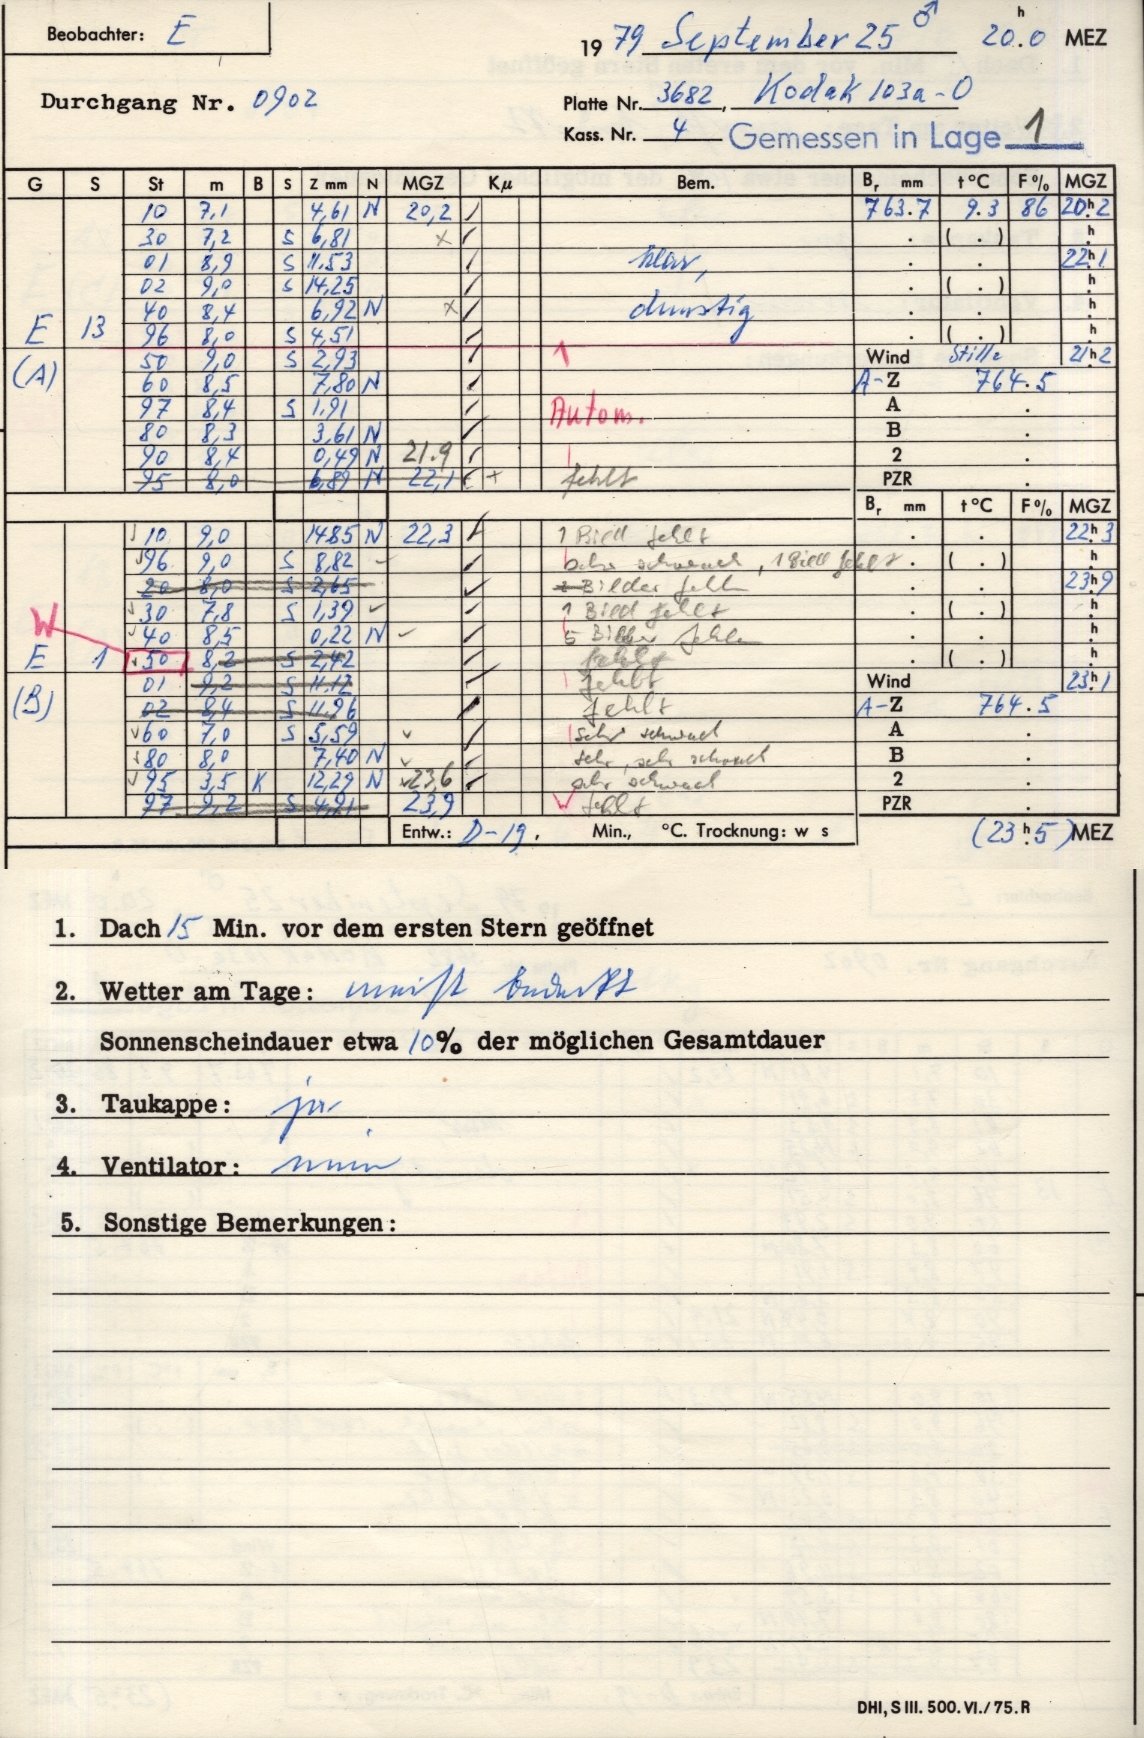 Beobachter: E
19 79 September 25 ♂ 20.0 h MEZ
Durchgang Nr. 0902
Platte Nr. 3682, Kodak 103a-O
Kass. Nr. 4 Gemessen in Lage 1
G S St m B S Z mm N MGZ Kμ Bem. Br mm t°C F% MGZ
10 7,1 4,61 N 20,2 763.7 9.3 86 20h2
30 7,2 S 6,81 x ( . ) h
01 8,9 S 11.53 klar, 22h1
02 9,0 S 14,25 ( . ) h
40 8,4 6,92 N x dunstig h
E 13 96 8,0 S 4,51 ( . ) h
(A) 50 9,0 S 2,93 Wind Stille 21h2
60 8,5 7,80 N A-Z 764.5
97 8,4 S 1,91 Autom. A .
80 8,3 3,61 N B .
90 8,4 0,49 N 21.9 2 .
95 8,0 6,89 N 22,1 + fehlt PZR .
Br mm t°C F% MGZ
10 9,0 14.85 N 22,3 1 Bild fehlt 22h3
96 9,0 S 8,82 sehr schwach, 1 Bild fehlt ( . ) h
20 8,0 S 2,65 Bilder fehlen 23h9
W 30 7,8 S 1,39 1 Bild fehlt ( . ) h
40 8,5 0,22 N 5 Bilder fehlen h
E 1 50 8,2 S 2,42 fehlt ( . ) h
(B) 01 9,2 S 11.12 fehlt Wind 23h1
02 8,4 S 11,96 fehlt A-Z 764.5
60 7,0 S 5,59 sehr schwach A .
80 8,0 7,40 N sehr, sehr schwach B .
95 3,5 K 12,29 N 23,6 sehr schwach 2 .
97 9,2 S 4,21 23,9 fehlt PZR .
Entw.: D-19, Min., °C. Trocknung: w s (23h5) MEZ
1. Dach 15 Min. vor dem ersten Stern geöffnet
2. Wetter am Tage: meist bedeckt
Sonnenscheindauer etwa 10% der möglichen Gesamtdauer
3. Taukappe: ja
4. Ventilator: nein
5. Sonstige Bemerkungen:
DHI, S III. 500. VI. / 75. R